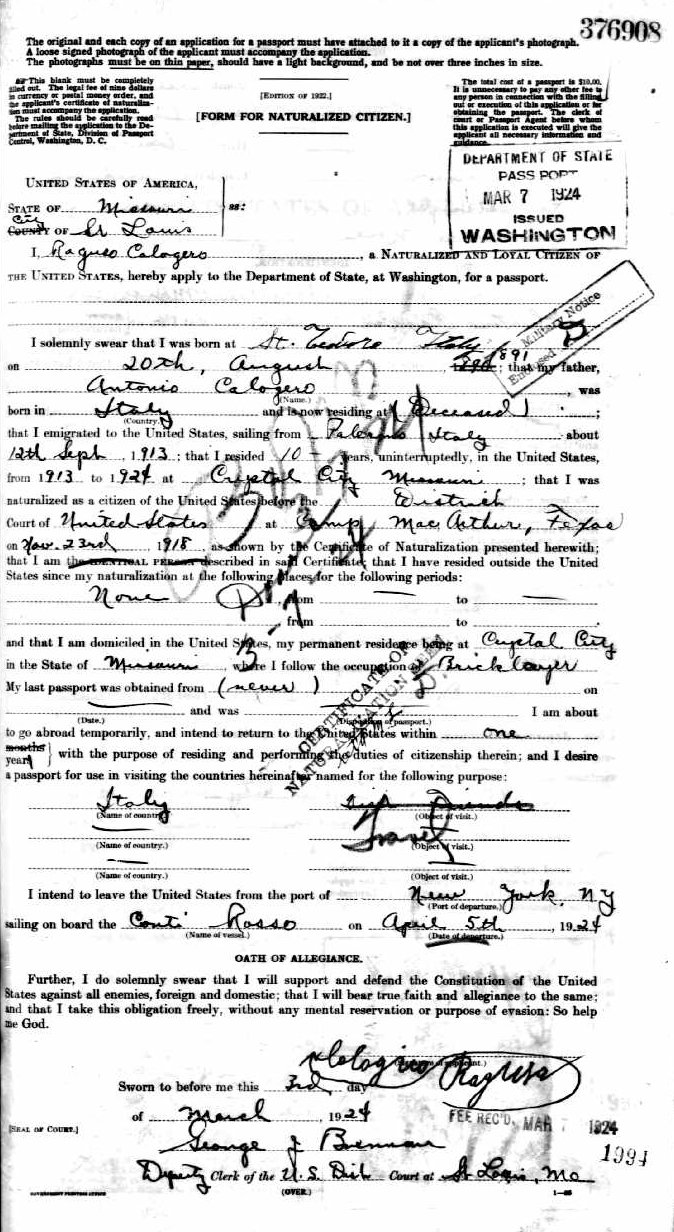 376908
The original and each copy of an application for a passport must have attached to it a copy of the applicant's photograph.
A loose signed photograph of the applicant must accompany the application.
The photographs must be on thin paper, should have a light background, and be not over three inches in size.
This blank must be completely
filled out. The legal fee of nine dollars
in currency or postal money order, and
the applicant's certificate of naturaliza-
tion must accompany the application.
The rules should be carefully read
before mailing the application to the De-
partment of State, Division of Passport
Control, Washington, D. C.
[EDITION OF 1922.]
[FORM FOR NATURALIZED CITIZEN.]
The total cost of a passport is $10.00.
It is unnecessary to pay any other fee to
any person in connection with the filling
out or execution of this application or for
obtaining the passport. The clerk of
court or Passport Agent before whom
this application is executed will give the
applicant all necessary information and
guidance.
DEPARTMENT OF STATE
PASSPORT
MAR 7 1924
ISSUED
WASHINGTON
UNITED STATES OF AMERICA,
STATE OF Missouri
City
COUNTY OF St Louis
ss:
I, Raguso Calogero, a NATURALIZED AND LOYAL CITIZEN OF
THE UNITED STATES, hereby apply to the Department of State, at Washington, for a passport.
Military Notice
Enclosed
I solemnly swear that I was born at St. Teodoro Italy
on 20th, August 1891; that my father,
Antonio Calogero, was
(Name.)
born in Italy and is now residing at (Deceased);
(Country.)
that I emigrated to the United States, sailing from Palermo Italy about
12th Sept, 1913; that I resided 10 years, uninterruptedly, in the United States,
from 1913 to 1924 at Crystal City Missouri; that I was
naturalized as a citizen of the United States before the District
Court of United States at Camp Mac Arthur, Texas
on Nov. 23rd 1918, as shown by the Certificate of Naturalization presented herewith;
that I am the IDENTICAL PERSON described in said Certificate; that I have resided outside the United
States since my naturalization at the following places for the following periods:
None, from — to —
, from to
and that I am domiciled in the United States, my permanent residence being at Crystal City
in the State of Missouri, where I follow the occupation of Bricklayer
My last passport was obtained from (never) on
and was I am about
(Date.) (Disposition of passport.)
CERTIFICATE OF
NATURALIZATION
to go abroad temporarily, and intend to return to the United States within one
months
years with the purpose of residing and performing the duties of citizenship therein; and I desire
a passport for use in visiting the countries hereinafter named for the following purpose:
Italy
(Name of country.) (Object of visit.)
Travel
(Name of country.) (Object of visit.)
(Name of country.) (Object of visit.)
I intend to leave the United States from the port of New York, N Y
(Port of departure.)
sailing on board the Conti Rosso on April 5th, 1924
(Name of vessel.) (Date of departure.)
OATH OF ALLEGIANCE.
Further, I do solemnly swear that I will support and defend the Constitution of the United
States against all enemies, foreign and domestic; that I will bear true faith and allegiance to the same;
and that I take this obligation freely, without any mental reservation or purpose of evasion: So help
me God.
x Calogero Ragusa
Sworn to before me this 3rd, day
of March, 1924
FEE REC'D, MAR 1924
1994
[SEAL OF COURT.]
George J Brennan
Deputy Clerk of the U. S. Dist Court at St Louis, Mo
GOVERNMENT PRINTING OFFICE
(OVER.)